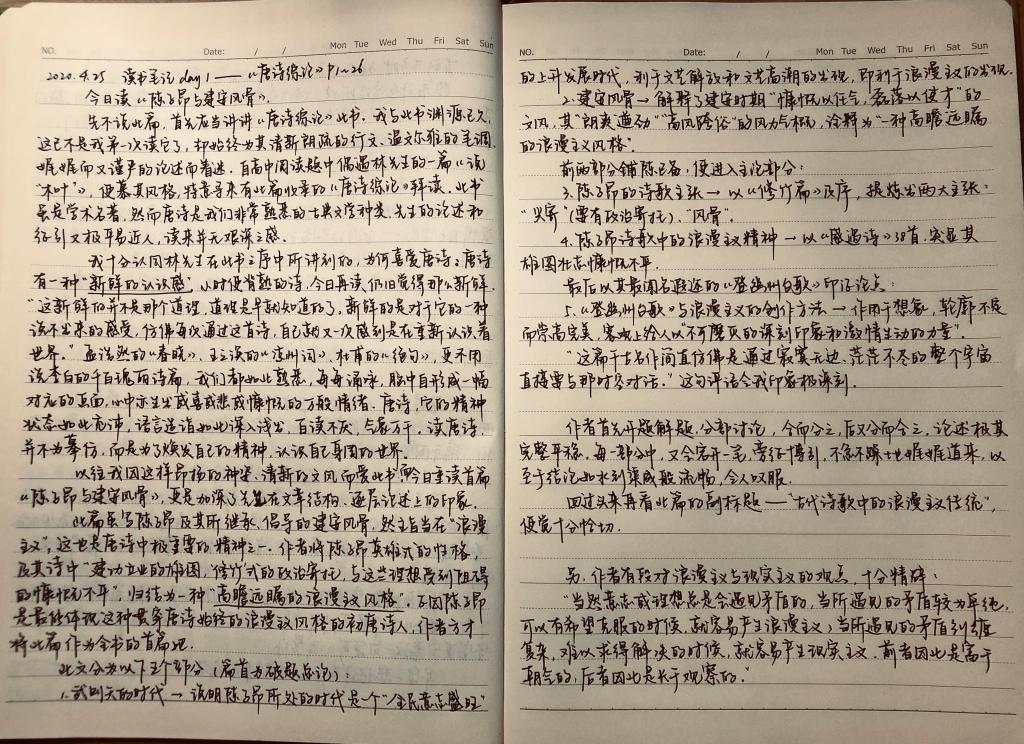 NO. Date: / / Mon Tue Wed Thu Fri Sat Sun
2020.4.25 读书笔记 day 1 ——《唐诗综论》P1~26
今日读《陈子昂与建安风骨》。
先不说此篇，首先应当讲讲《唐诗综论》此书。我与此书渊源已久，
这已不是我第一次读它了，却始终为其清新朗疏的行文、温文尔雅的笔调、
娓娓而又谨严的论述而着迷。自高中阅读题中偶遇林先生的一篇《说
"木叶"》，便慕其风格，特意寻来有此篇收录的《唐诗综论》拜读。此书
虽是学术名著，然而唐诗是我们非常熟悉的古典文学种类，先生的论述和
征引又极平易近人，读来并无艰深之感。
我十分认同林先生在此书之序中所讲到的，为何喜爱唐诗：唐诗
有一种"新鲜的认识感"。小时便背熟的诗，今日再读仍旧觉得那么新鲜。
"这新鲜的并不是那个道理，道理是早就知道的了，新鲜的是对于它的一种
说不出来的感受，仿佛每次通过这首诗，自己就又一次感到是在重新认识着
世界。"孟浩然的《春晓》、王之涣的《凉州词》、杜甫的《绝句》，更不用
说李白的千百瑰丽诗篇，我们都如此熟悉，每每诵咏，脑中自形成一幅
对应的画面，心中亦生出或喜或悲或慷慨的万般情绪。唐诗，它的精神
状态如此充沛，语言造诣如此深入浅出，百读不厌，气象万千，读唐诗，
并不为摹仿，而是为了焕发自己的精神，认识自己身周的世界。
以往我因这样昂扬的神姿、清新的文风而爱此书，而今日重读首篇
《陈子昂与建安风骨》，更是加深了先生在文章结构、逐层论述上的印象。
此篇虽写陈子昂及其所继承、倡导的建安风骨，然主旨当在"浪漫
主义"，这也是唐诗中极重要的精神之一。作者将陈子昂英雄式的性格，
及其诗中"建功立业的雄图，《修竹》式的政治寄托，与这些理想受到阻碍
的慷慨不平"，归结为一种"高瞻远瞩的浪漫主义风格"。正因陈子昂
是最能体现这种贯穿唐诗始终的浪漫主义风格的初唐诗人，作者方才
将此篇作为全书的首篇吧。
此文分为以下五个部分（篇首为破题总论）：
1. 武则天的时代 → 说明陈子昂所处的时代是个"全民意志盛旺"
NO. Date: / / Mon Tue Wed Thu Fri Sat Sun
的上升发展时代，利于文艺解放和文艺高潮的出现，即利于浪漫主义的出现。
2. 建安风骨 → 解释了建安时期"慷慨以任气，磊落以使才"的
文风，其"朗爽遒劲""高风跨俗"的风力气概，诠释为"一种高瞻远瞩
的浪漫主义风格"。
前两部分铺陈已备，便进入主论部分：
3. 陈子昂的诗歌主张 → 以《修竹篇》及序，提炼出两大主张：
"兴寄"（要有政治寄托）、"风骨"。
4. 陈子昂诗歌中的浪漫主义精神 → 以《感遇诗》38首，突显其
雄图壮志慷慨不平。
最后以其最闻名遐迩的《登幽州台歌》印证论点：
5.《登幽州台歌》与浪漫主义的创作方法 → 作用于想象，轮廓不是
而崇高完美，客观上给人以"不可磨灭的深刻印象和激情生动的力量"。
"这篇千古名作间直仿佛是通过寂寞无边、茫茫不尽的整个宇宙
直接要与那时终对话。"这句评语令我印象极深刻。
作者首先开题解题，分部讨论，合而分之，后又分而合之，论述极其
完整平稳。每一部分中，又会宕开一笔，旁征博引，不急不躁地娓娓道来，以
至于结论如水到渠成般流畅，令人叹服。
回过头来再看此篇的副标题——"古代诗歌中的浪漫主义传统"，
便觉十分恰切。
另，作者有段对浪漫主义与现实主义的观点，十分精辟：
"当然意志或理想总是会遇见矛盾的，当所遇见的矛盾较为单纯，
可以有希望克服的时候，就容易产生浪漫主义；当所遇见的矛盾到了
复杂，难以求得解决的时候，就容易产生现实主义。前者因此是富于
朝气的，后者因此是长于观察的。"